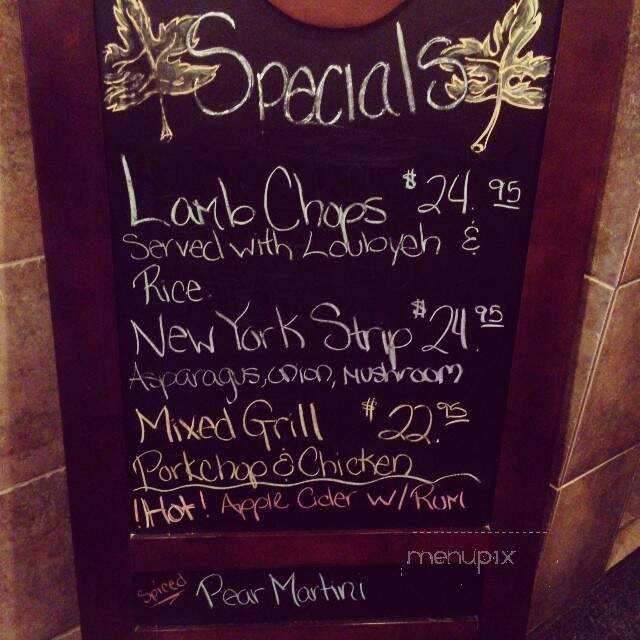 Specials
Lamb Chops $24.95
Served with Loubyeh &
Rice.
New York Strip $24.95
Asparagus, onion, mushroom
Mixed Grill $22.95
Porkchop & Chicken
!Hot! Apple Cider w/Rum
menupix
Spiced Pear Martini